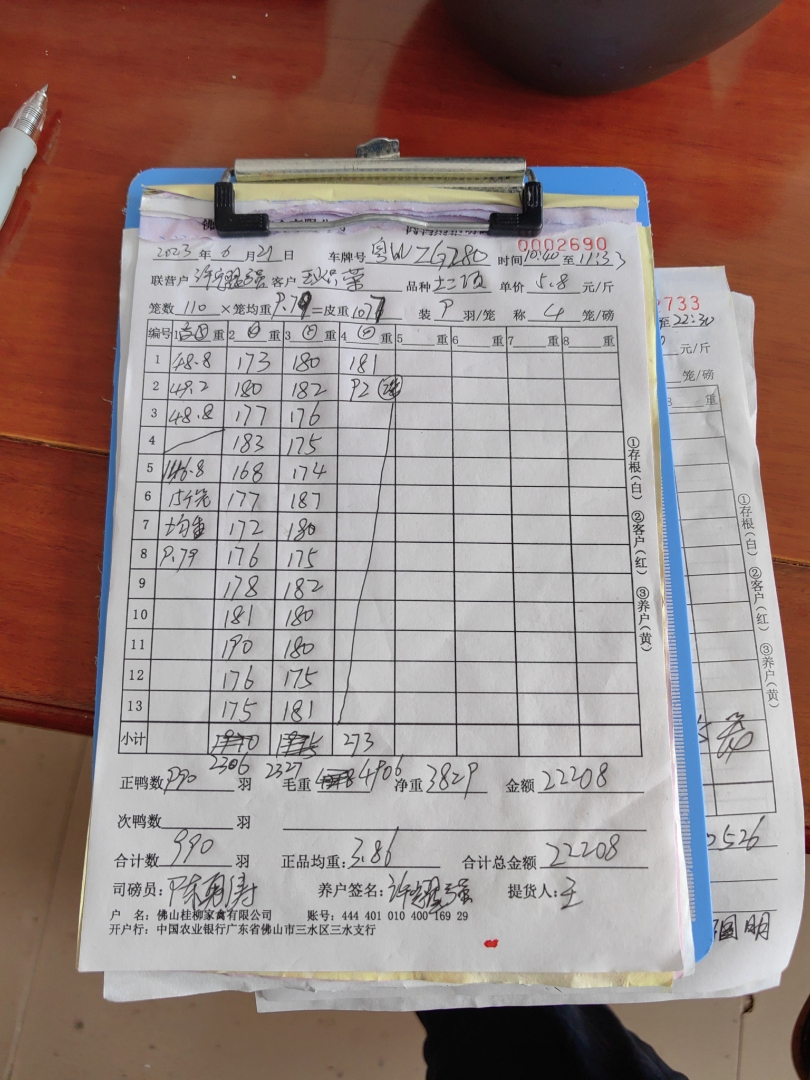 0002690
2023 年 6 月 21 日 车牌号 粤W7G280 时间 10:40 至 11:33
联营户 客户 荣 品种 单价 5.8 元/斤
笼数 110 × 笼均重 9.79 = 皮重 1077 装 9 羽/笼 称 4 笼/磅
编号 1 重 2 重 3 重 4 重 5 重 6 重 7 重 8 重
1 48.8 173 180 181
2 49.2 180 182 92
3 48.8 177 176
4 183 175
5 146.8 168 174
6 15个笼 177 187
7 均重 172 180
8 9.79 176 175
9 178 182
10 181 180
11 190 180
12 176 175
13 175 181
小计 273
2306 2327
正鸭数 990 羽 毛重 4906 净重 3829 金额 22208
次鸭数 羽
合计数 990 羽 正品均重: 3.86 合计总金额 22208
司磅员: 陈 涛 养户签名: 许 强 提货人: 王
户 名: 佛山桂柳家禽有限公司 账号: 444 401 010 400 169 29
开户行: 中国农业银行广东省佛山市三水区三水支行
①存根(白) ②客户(红) ③养户(黄)
2733
至 22:30
元/斤
笼/磅
8 重
①存根(白) ②客户(红) ③养户(黄)
2526
明